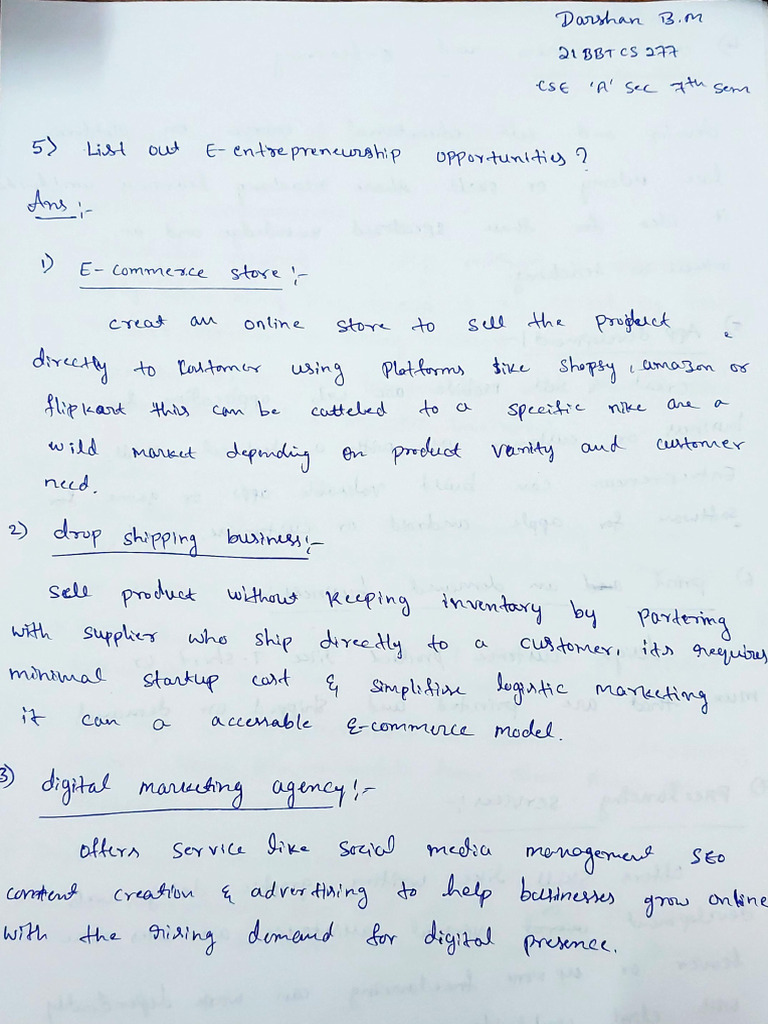 Darshan B.M
21BBTCS277
CSE 'A' Sec 7th Sem
5) List out E-entrepreneurship opportunities?
Ans:-
1) E-commerce store:-
creat an online store to sell the product
directly to Kustomer using Platforms like Shopsy, amazon or
flipkart this can be catteled to a specific nike are a
wild market depending on product vanity and customer
need.
2) drop shipping business:-
Sell product without keeping inventary by partering
with supplier who ship directly to a customer. its requires
minimal startup cast & simplifise logistic marketing
it can a accessable E-commerce model.
3) digital marketing agency:-
offers service like social media management SEO
content creation & advertising to help businesses grow online
with the rising demand for digital presence.